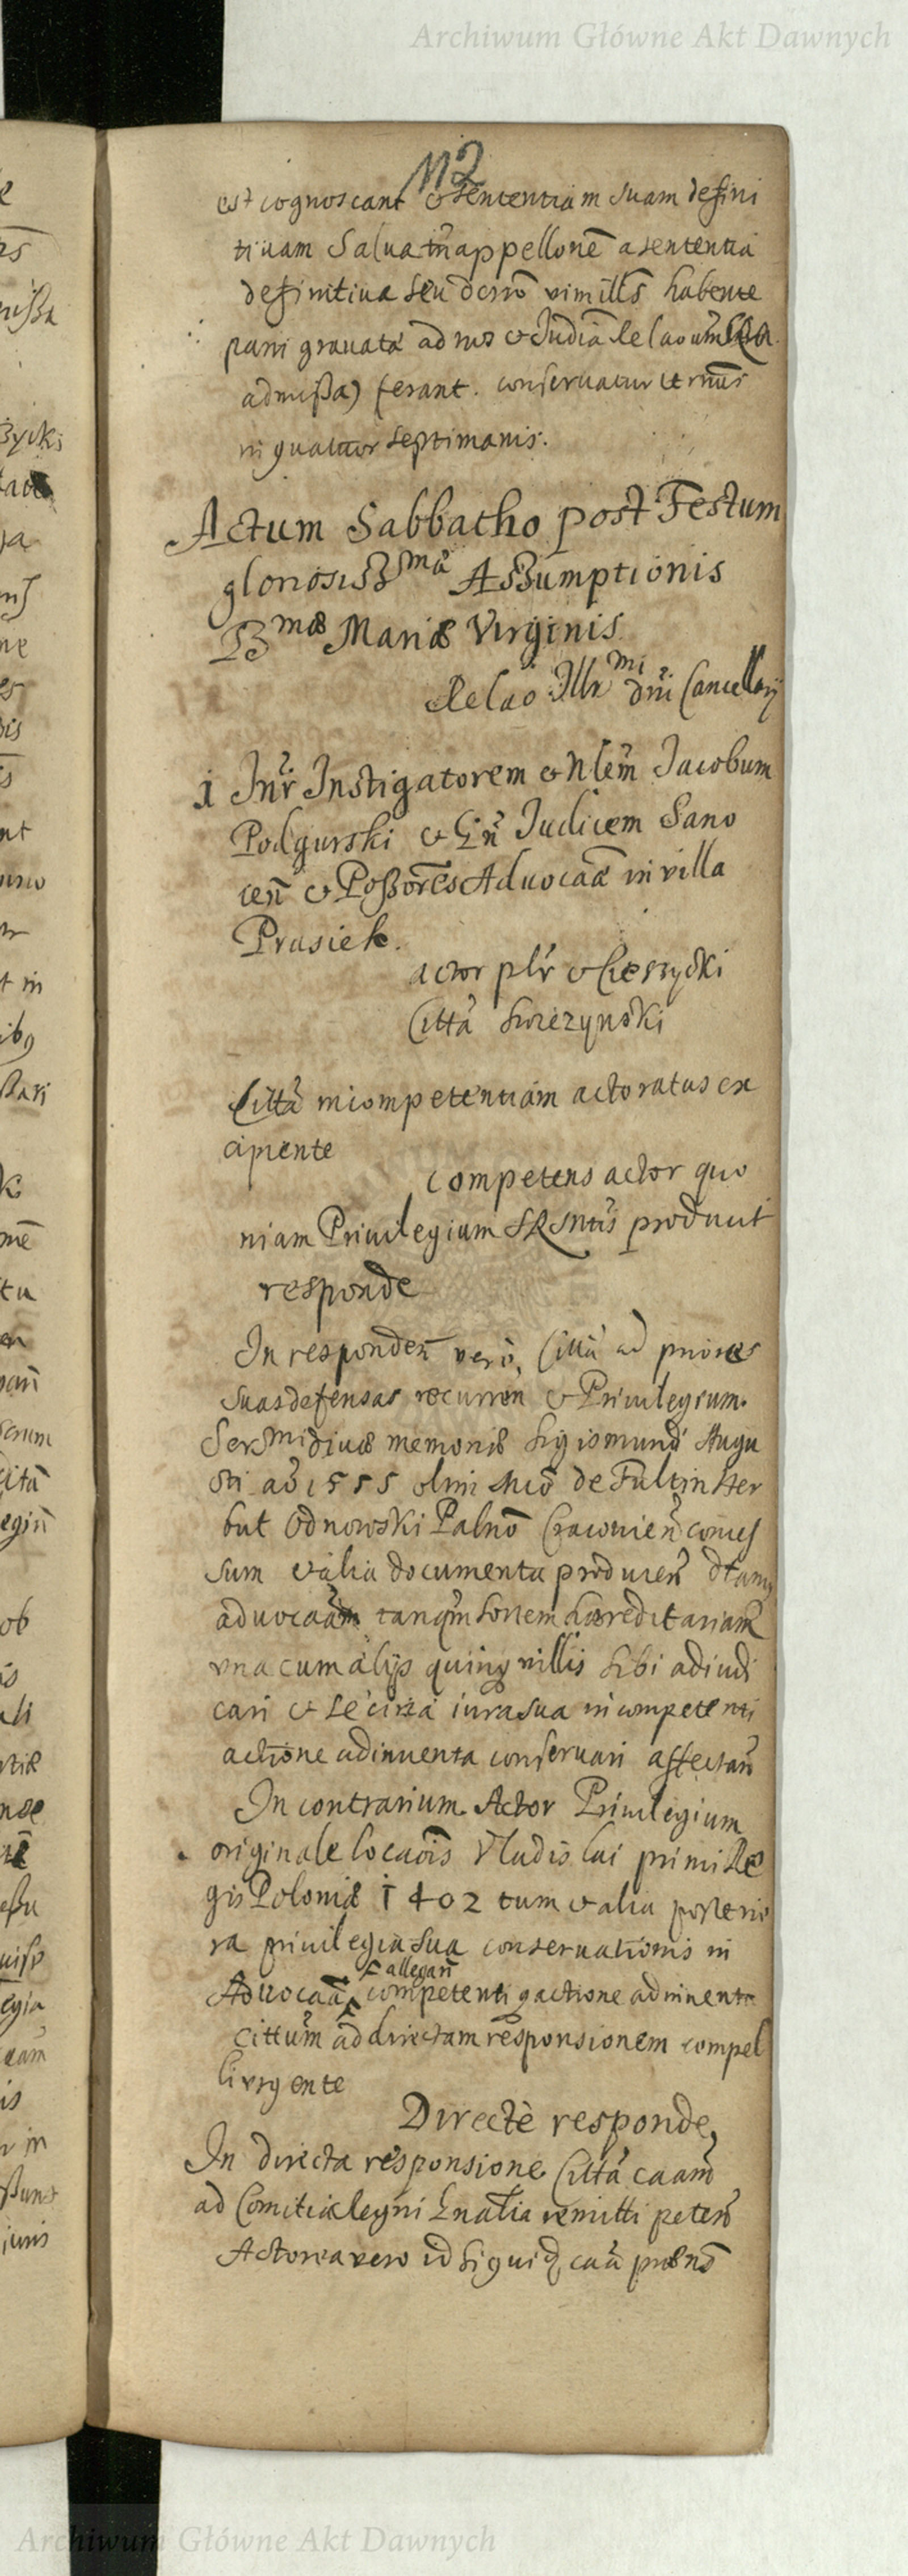 Archiwum Główne Akt Dawnych
112
est cognoscant et sententiam suam defini
tiuam Salua tn̄ appellonē a sententia
definitiua seu decrō vim illīs habente
parti grauata ad nos et Iudiā Relaōum SRM
admissa) ferant. conseruatur termīs
in quatuor septimanis.
Actum Sabbatho post Festum
gloriosissmæ Assumptionis
Bmæ Mariæ Virginis
Relaō Illrmi dn̄i Cancellarij
1 Intr Instigatorem et Nlem̄ Jacobum
Podgurski et Gn̄ Iudicem Sano
cen̄ et Possorēs Aduocaāe in villa
Prusiek.
actor plr et Cieszycki
Citta Swiezynski
Citta incompetentiam actoratus ex
cipiente
competens actor quo
niam Priuilegium SRMtis producit
responde
In responden̄ vero, Citta ad priores
suas defensas recurren̄ et Priuilegium
Sermi diuæ memoriæ Sigismundi Augu
sti aō 1555 olim Mcō de Fulstin Her
but Odnowski Palnō Cracouien̄ conces
sum et alia documenta producen̄ dtam
aduocaām tanqm sortem hæreditariam
vna cum alijs quinq villis sibi adiudi
cari et se circa iura sua incompetenti
actione adinuenta conseruari affectan̄
In contrarium Actor Priuilegium
originale locaōis Vladislai primi Re
gis Poloniæ 1402 tum et alia posterio
ra priuilegia sua conseruationis in
allegan̄
Aduocaā competenti q actione adinuenta
cittum ad directam responsionem compel
li vrgente
Directe responde,
In directa responsione Citta caam̄
ad Comitia Regni Gnalia remitti peten̄
Actorea vero id siquid caā præns̄
Archiwum Główne Akt Dawnych